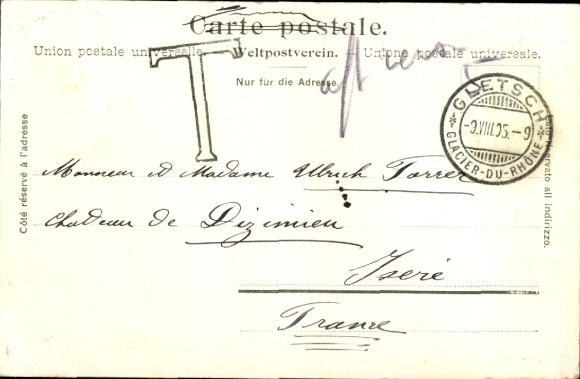 Carte postale.
Union postale universelle. — Weltpostverein. — Unione postale universale.
Nur für die Adresse
T
GLETSCH
-9.VIII.05.-9
GLACIER-DU-RHÔNE
Côté réservé à l'adresse
Lato riservato all indirizzo.
Monsieur et Madame Ulrich Torrer
Chateau de Dizimieu
Isère
France